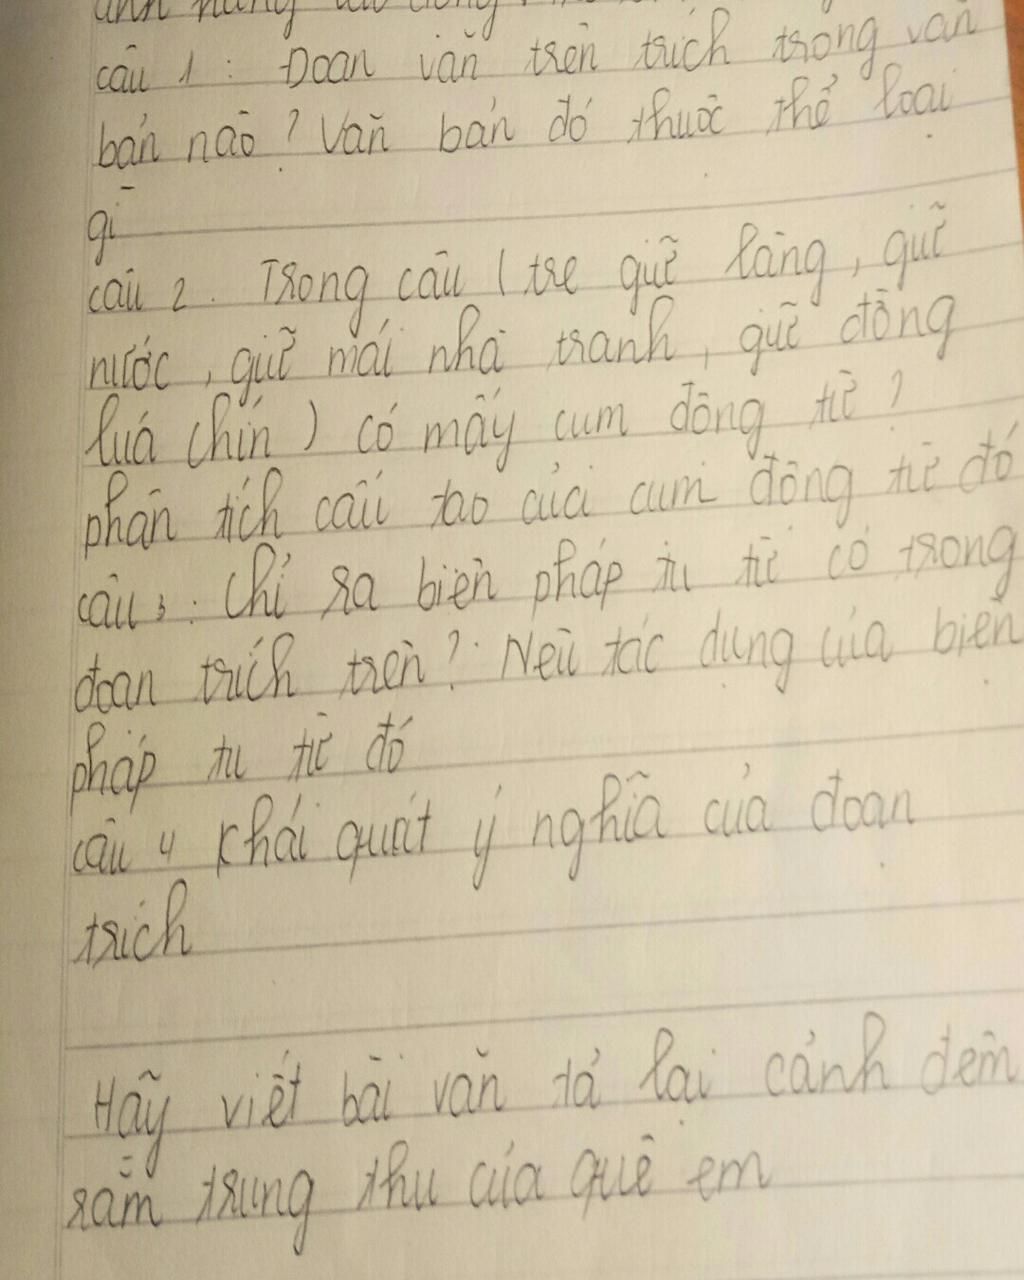 anh hùng lao động
câu 1 : Đoạn văn trên trích trong văn
bản nào ? Văn bản đó thuộc thể loại
gì
câu 2 . Trong câu ( tre giữ làng , giữ
nước , giữ mái nhà tranh , giữ đồng
lúa chín ) có mấy cụm động từ ?
phân tích cấu tạo của cụm động từ đó
câu 3 : Chỉ ra biện pháp tu từ có trong
đoạn trích trên ? Nêu tác dụng của biện
pháp tu từ đó
câu 4 Khái quát ý nghĩa của đoạn
trích
Hãy viết bài văn tả lại cảnh đêm
rằm trung thu của quê em